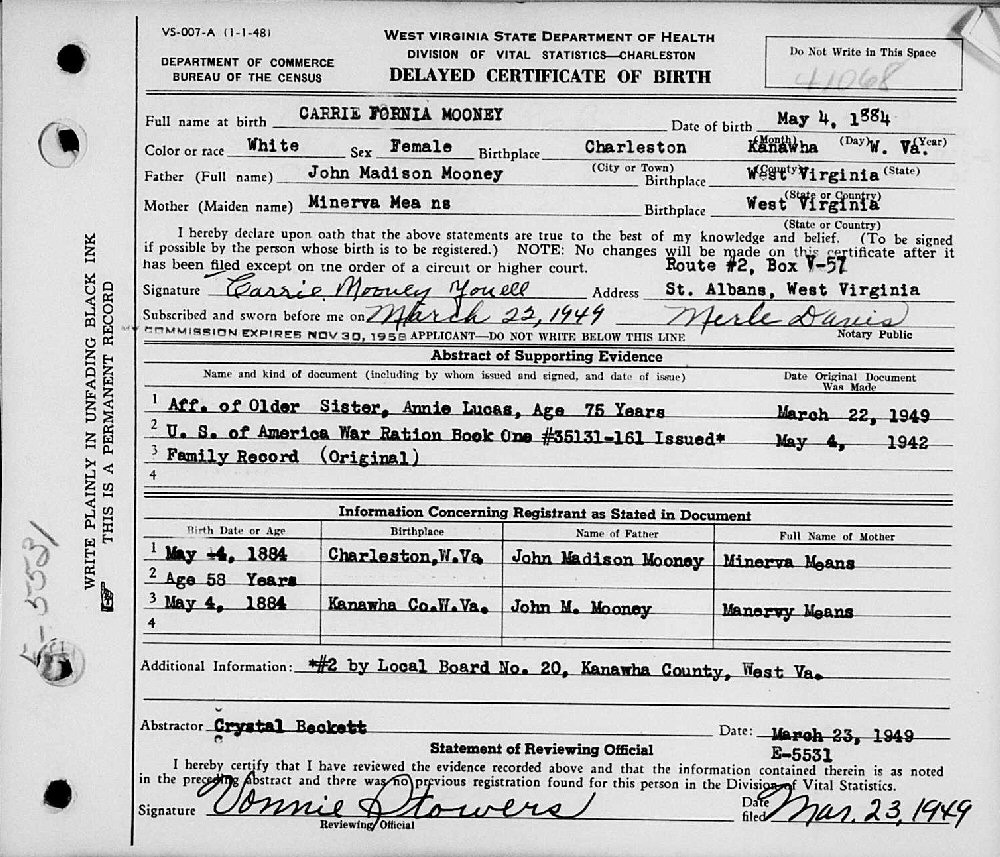 VS-007-A (1-1-48)
WEST VIRGINIA STATE DEPARTMENT OF HEALTH
DIVISION OF VITAL STATISTICS—CHARLESTON
DEPARTMENT OF COMMERCE
BUREAU OF THE CENSUS
DELAYED CERTIFICATE OF BIRTH
Do Not Write in This Space
41068
Full name at birth CARRIE FORNIA MOONEY Date of birth May 4, 1884
(Month) (Day) (Year)
Color or race White Sex Female Birthplace Charleston Kanawha W. Va.
(City or Town) (County) (State)
Father (Full name) John Madison Mooney Birthplace West Virginia
(State or Country)
Mother (Maiden name) Minerva Mea ns Birthplace West Virginia
(State or Country)
I hereby declare upon oath that the above statements are true to the best of my knowledge and belief. (To be signed
if possible by the person whose birth is to be registered.) NOTE: No changes will be made on this certificate after it
has been filed except on the order of a circuit or higher court. Route #2, Box V-57
Signature Carrie Mooney Youell Address St. Albans, West Virginia
Subscribed and sworn before me on March 22, 1949 Merle Davis
Notary Public
COMMISSION EXPIRES NOV 30, 1958 APPLICANT—DO NOT WRITE BELOW THIS LINE
Abstract of Supporting Evidence
Name and kind of document (including by whom issued and signed, and date of issue) Date Original Document
Was Made
1 Aff. of Older Sister, Annie Lucas, Age 75 Years March 22, 1949
2 U. S. of America War Ration Book One #35131-161 Issued* May 4, 1942
3 Family Record (Original)
4
Information Concerning Registrant as Stated in Document
Birth Date or Age Birthplace Name of Father Full Name of Mother
1 May 4, 1884 Charleston, W.Va John Madison Mooney Minerva Means
2 Age 58 Years
3 May 4, 1884 Kanawha Co.W.Va. John M. Mooney Manervy Means
4
Additional Information: *#2 by Local Board No. 20, Kanawha County, West Va.
Abstractor Crystal Beckett Date: March 23, 1949
Statement of Reviewing Official E-5531
I hereby certify that I have reviewed the evidence recorded above and that the information contained therein is as noted
in the preceding abstract and there was no previous registration found for this person in the Division of Vital Statistics.
Signature Vonnie Stowers Date filed Mar. 23, 1949
Reviewing Official
WRITE PLAINLY IN UNFADING BLACK INK
THIS IS A PERMANENT RECORD
E-5531